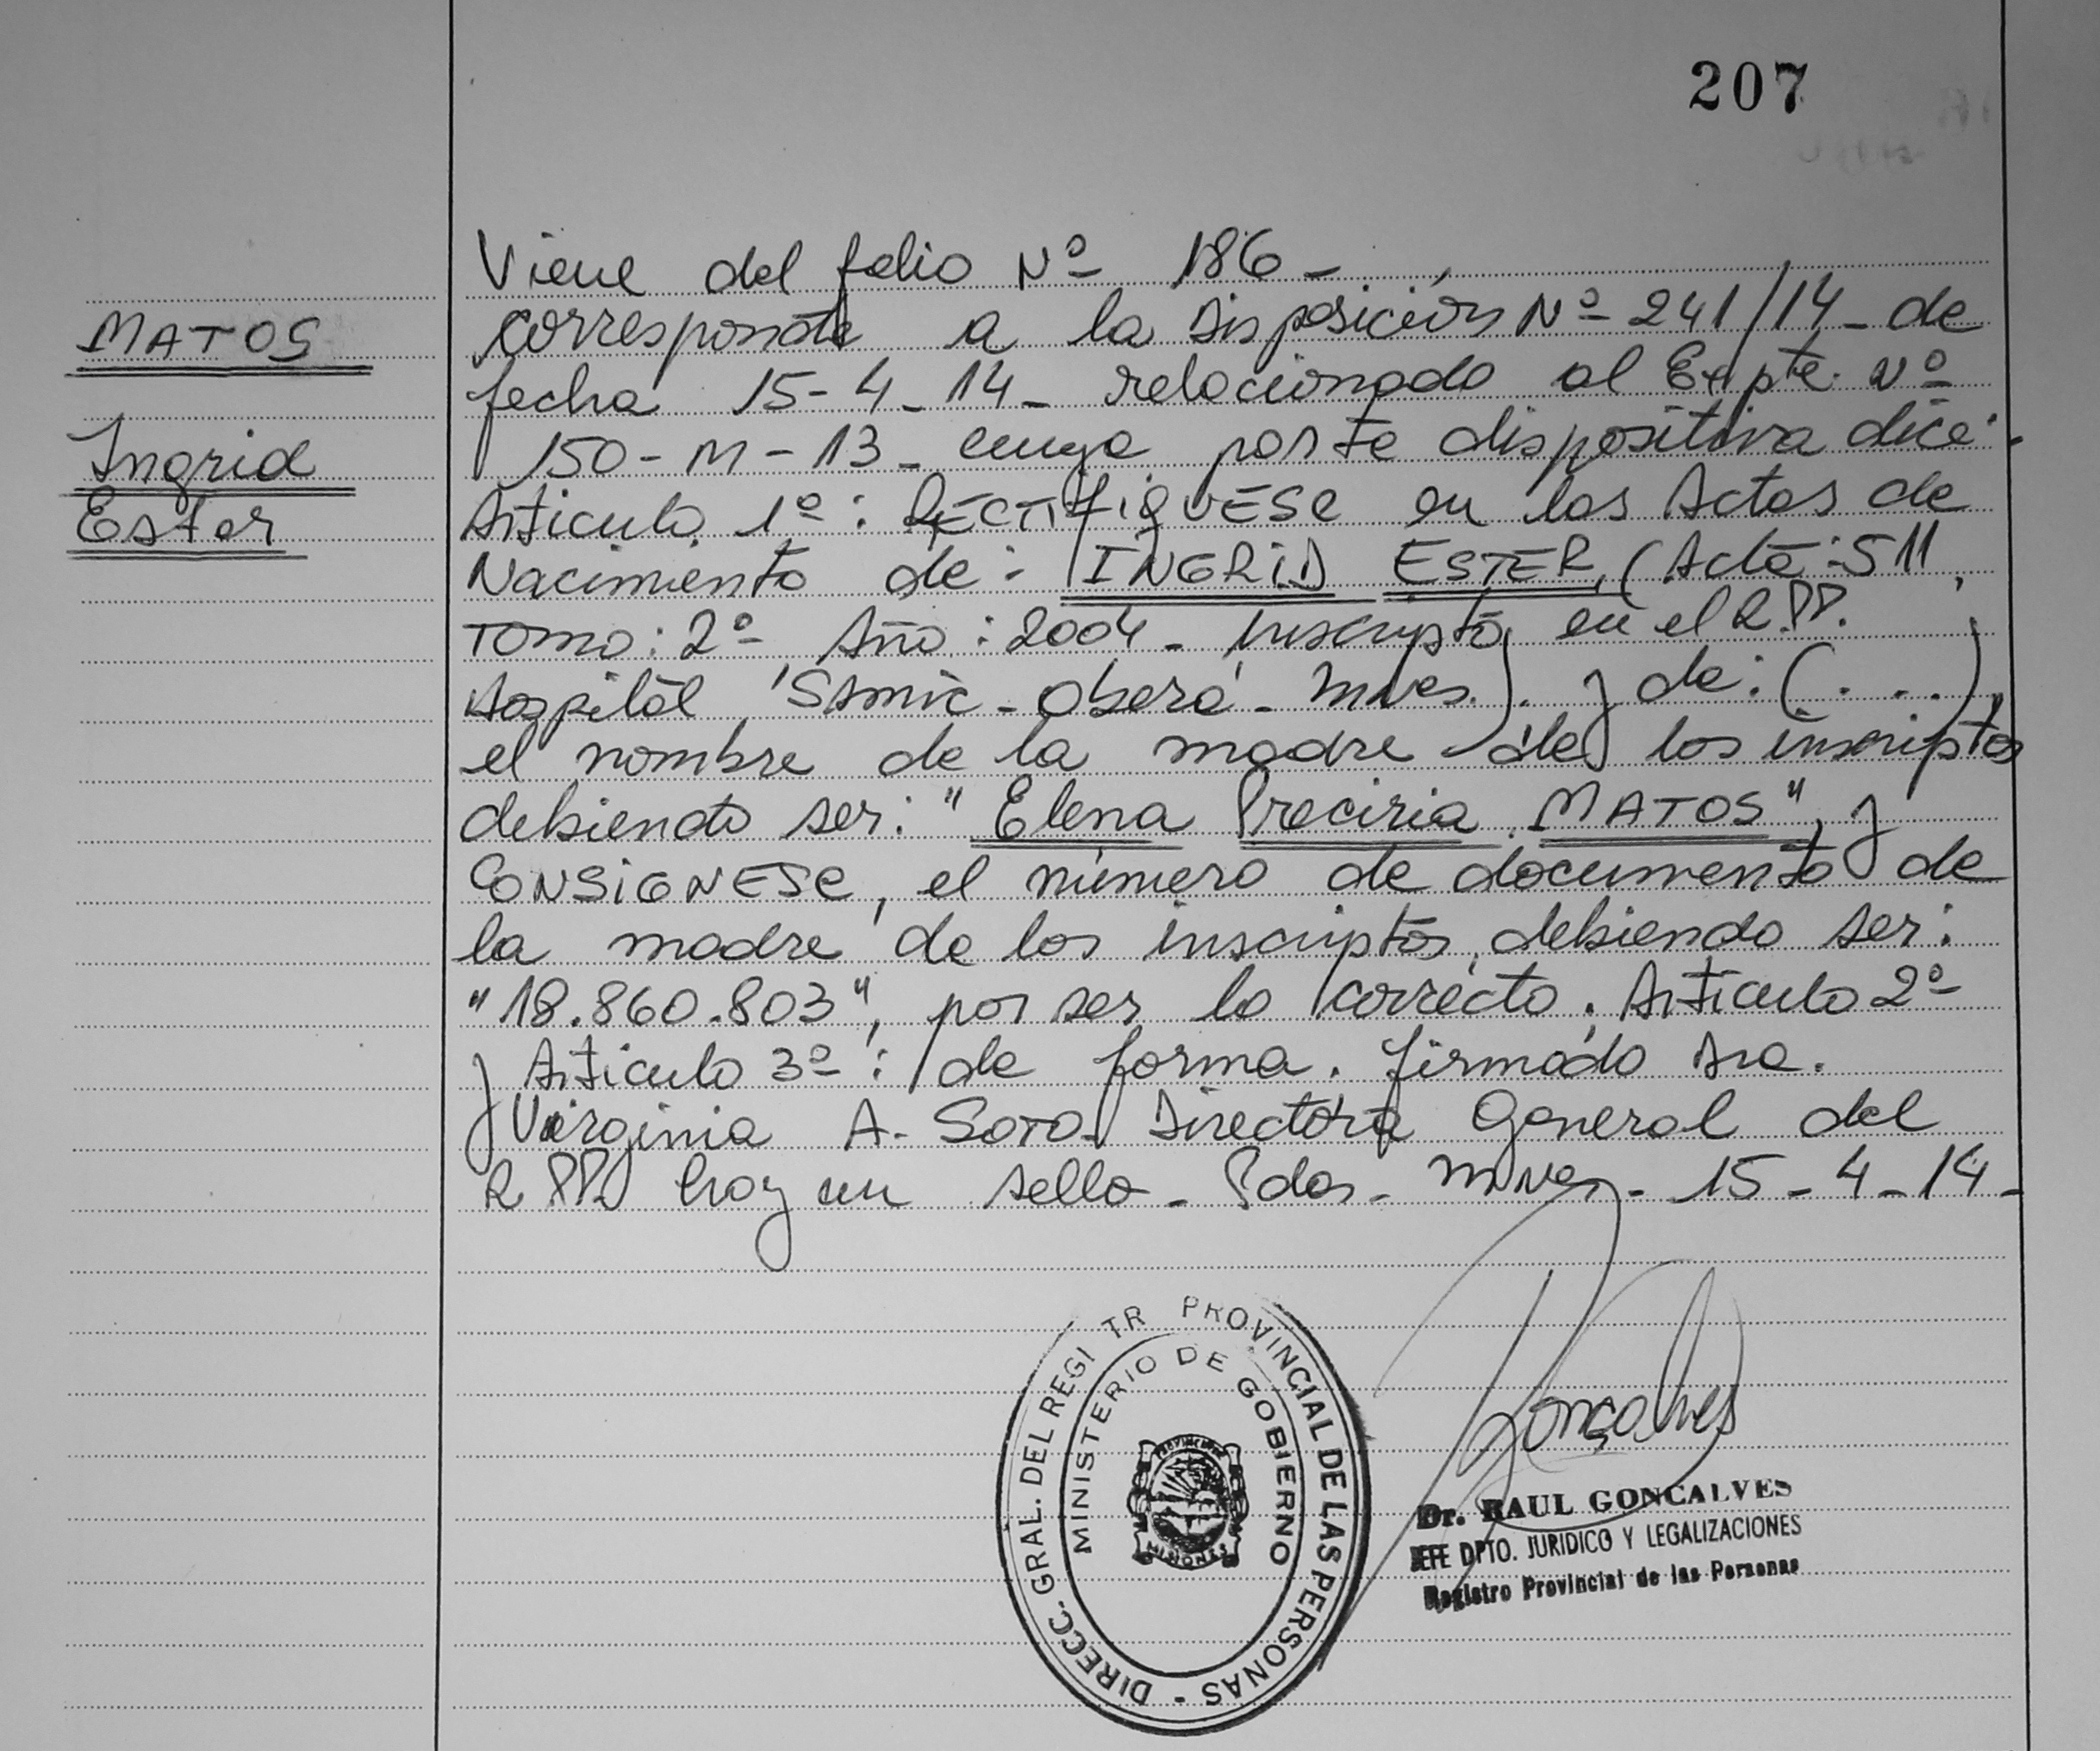 207
Viene del folio Nº 186-
MATOS
corresponde a la Disposición Nº 241/14- de
fecha 15-4-14- relacionado al Expte. Nº
Ingrid
150-M-13- cuya parte dispositiva dice:
Ester
Articulo 1º: RECTIFIQUESE en las Actas de
Nacimiento de: INGRID ESTER, (Acta: 511,
TOMO: 2º Año: 2004- inscripta en el R.PP.
Hospital SAMIC-Oberá- Mnes.). y de: (...)
el nombre de la madre de los inscriptos
debiendo ser: "Elena Preciria MATOS", y
CONSIGNESE, el número de documento de
la madre de los inscriptos, debiendo ser:
"18.860.803", por ser lo correcto. Articulo 2º
y Articulo 3º: de forma. firmado Dra.
Virginia A. Soto- Directora General del
R PP. hay un sello- Pdas- Mnes- 15-4-14-
DIRECC. GRAL. DEL REGI TR PROVINCIAL DE LAS PERSONAS -
MINISTERIO DE GOBIERNO
PROVINCIA
MISIONES
Goncalves
Dr. RAUL GONCALVES
JEFE DPTO. JURIDICO Y LEGALIZACIONES
Registro Provincial de las Personas